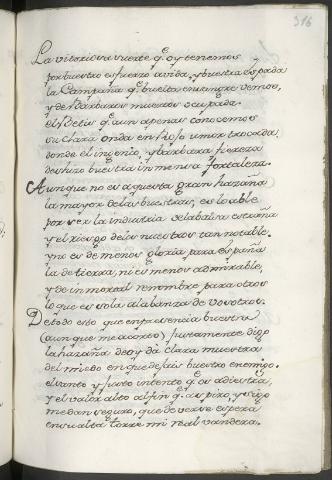 316
La vitoriosa suerte q.e oy tenemos
por buestro esfuerzo avida, y buestra espada
la Campaña q.e buelta en sangre vemos,
y de Barbaros muertos ocupada.
el Betis q.e aun apenas conocemos
su clara onda en Rojo umor trocada,
donde el ingenio, y barbara fiereza
deshizo buestra inmensa fortaleza.
Aunque no es aquesta gran hazaña
la mayor de las buestras, es loable
por ser la industria del alarbe estraña
y el riesgo de los nuestros tan notable.
y no es de menos gloria para España
la de tierra, ni es menos admirable,
y de inmortal renombre para otros
lo que es sola alabanza de vosotros.
De todo esto que en presencia buestra
(aunque me acorto) justamente digo
la hazaña de oy da clara muestra
del miedo en que dejais buestro enemigo.
el santo y justo intento q.e os adiestra,
y el valor alto al fin q.e aspiro, y sigo
me dan seguro, que de verse espera
en su alta torre mi real vandera.